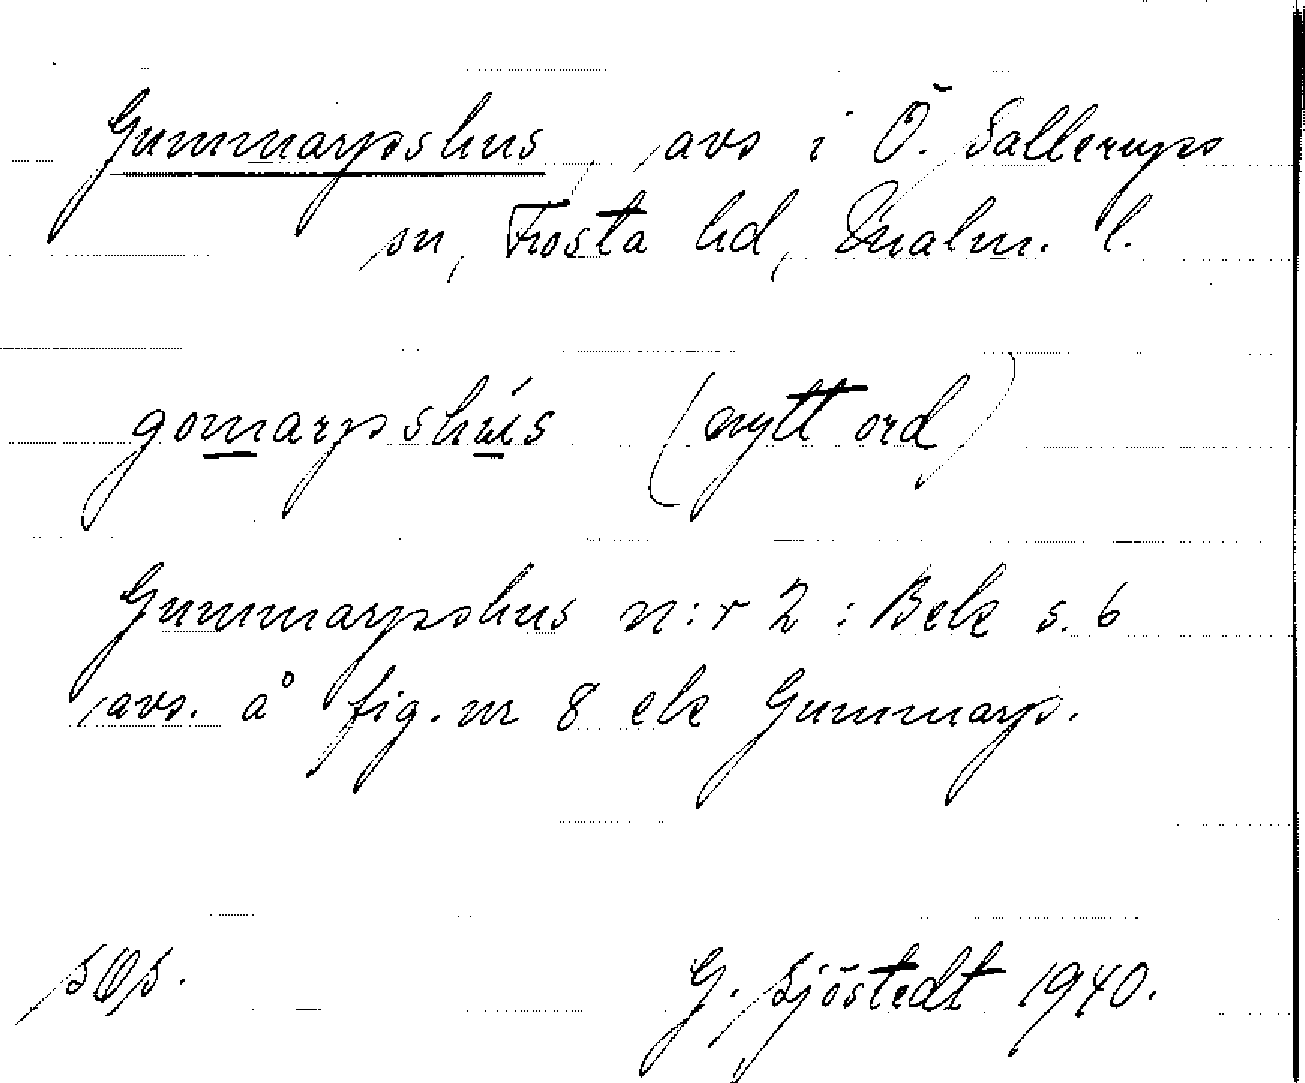 Gummarpshus, avs i Ö. Sallerups
sn, Frosta hd, Malm. l.
gomarpshús (nytt ord)
Gummarpshus n:r 2 : Bek s. 6
avs. å fig. nr 8 ek Gummarp.
G. Sjöstedt 1940.